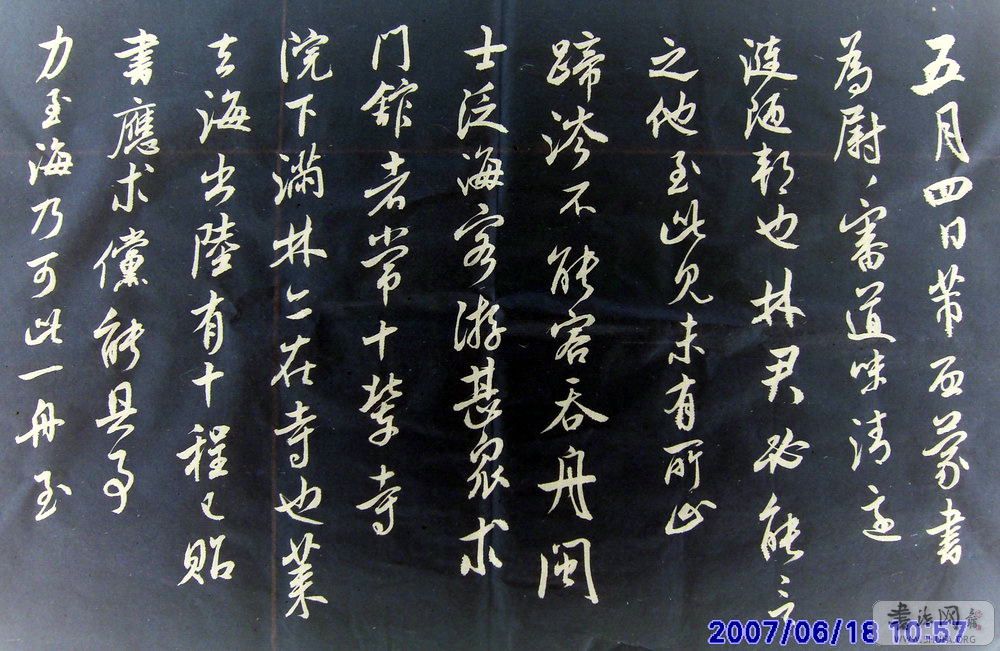 五月四日芾啓蒙書
為尉〻審道味清適
漣陋邦也林君必能〻言
之他至此見未有所止
蹄涔不能容吞舟閩
士泛海客游甚衆求
門館者常十輩寺
院下滿林亦在寺也萊
去海出陸有十程已貽
書應求儻能具事
力至海乃可此一舟至
2007/06/18 10:57
书法网